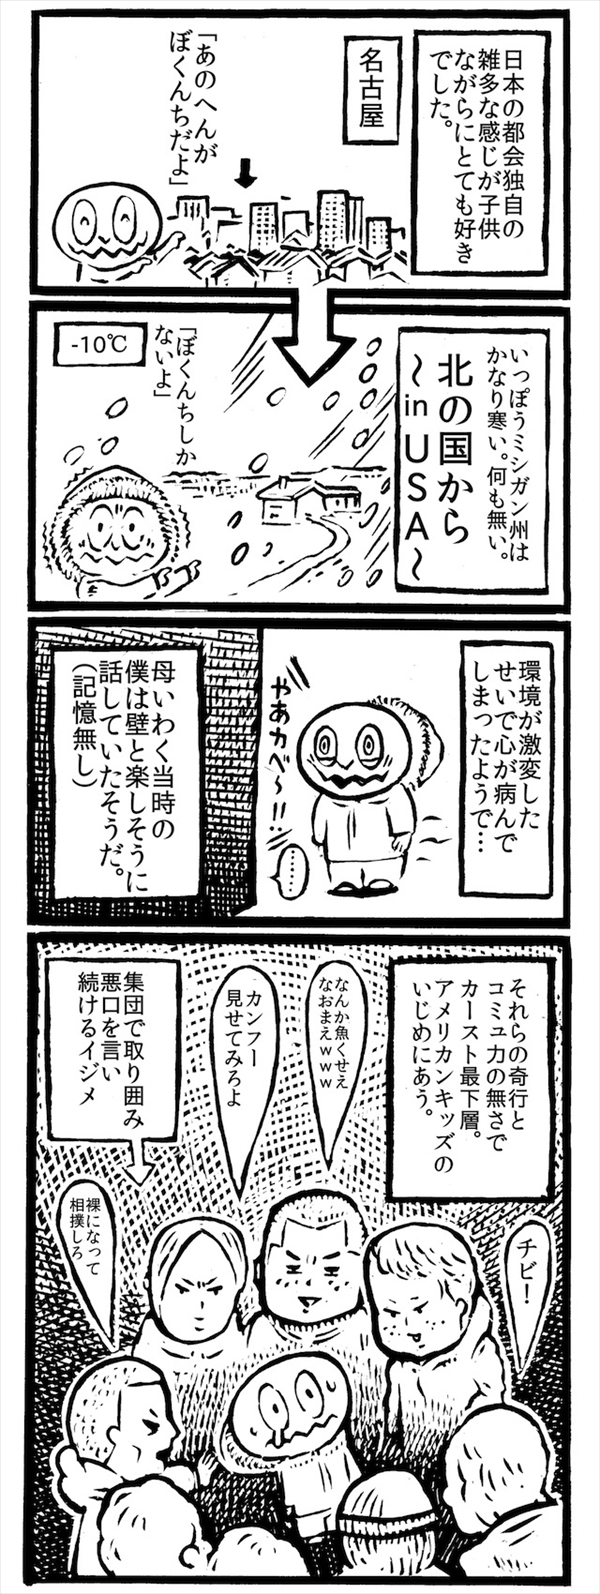 日本の都会独自の
雑多な感じが子供
ながらにとても好き
でした。
名古屋
「あのへんが
ぼくんちだよ」
いっぽうミシガン州は
かなり寒い。何も無い。
北の国から
～in USA～
「ぼくんちしか
ないよ」
-10℃
環境が激変した
せいで心が病んで
しまったようで…
やあカベ～!!
……
母いわく当時の
僕は壁と楽しそうに
話していたそうだ。
(記憶無し)
それらの奇行と
コミュ力の無さで
カースト最下層。
アメリカンキッズの
いじめにあう。
なんか魚くせえ
なおまえwww
カンフー
見せてみろよ
集団で取り囲み
悪口を言い
続けるイジメ
チビ！
裸になって
相撲しろ